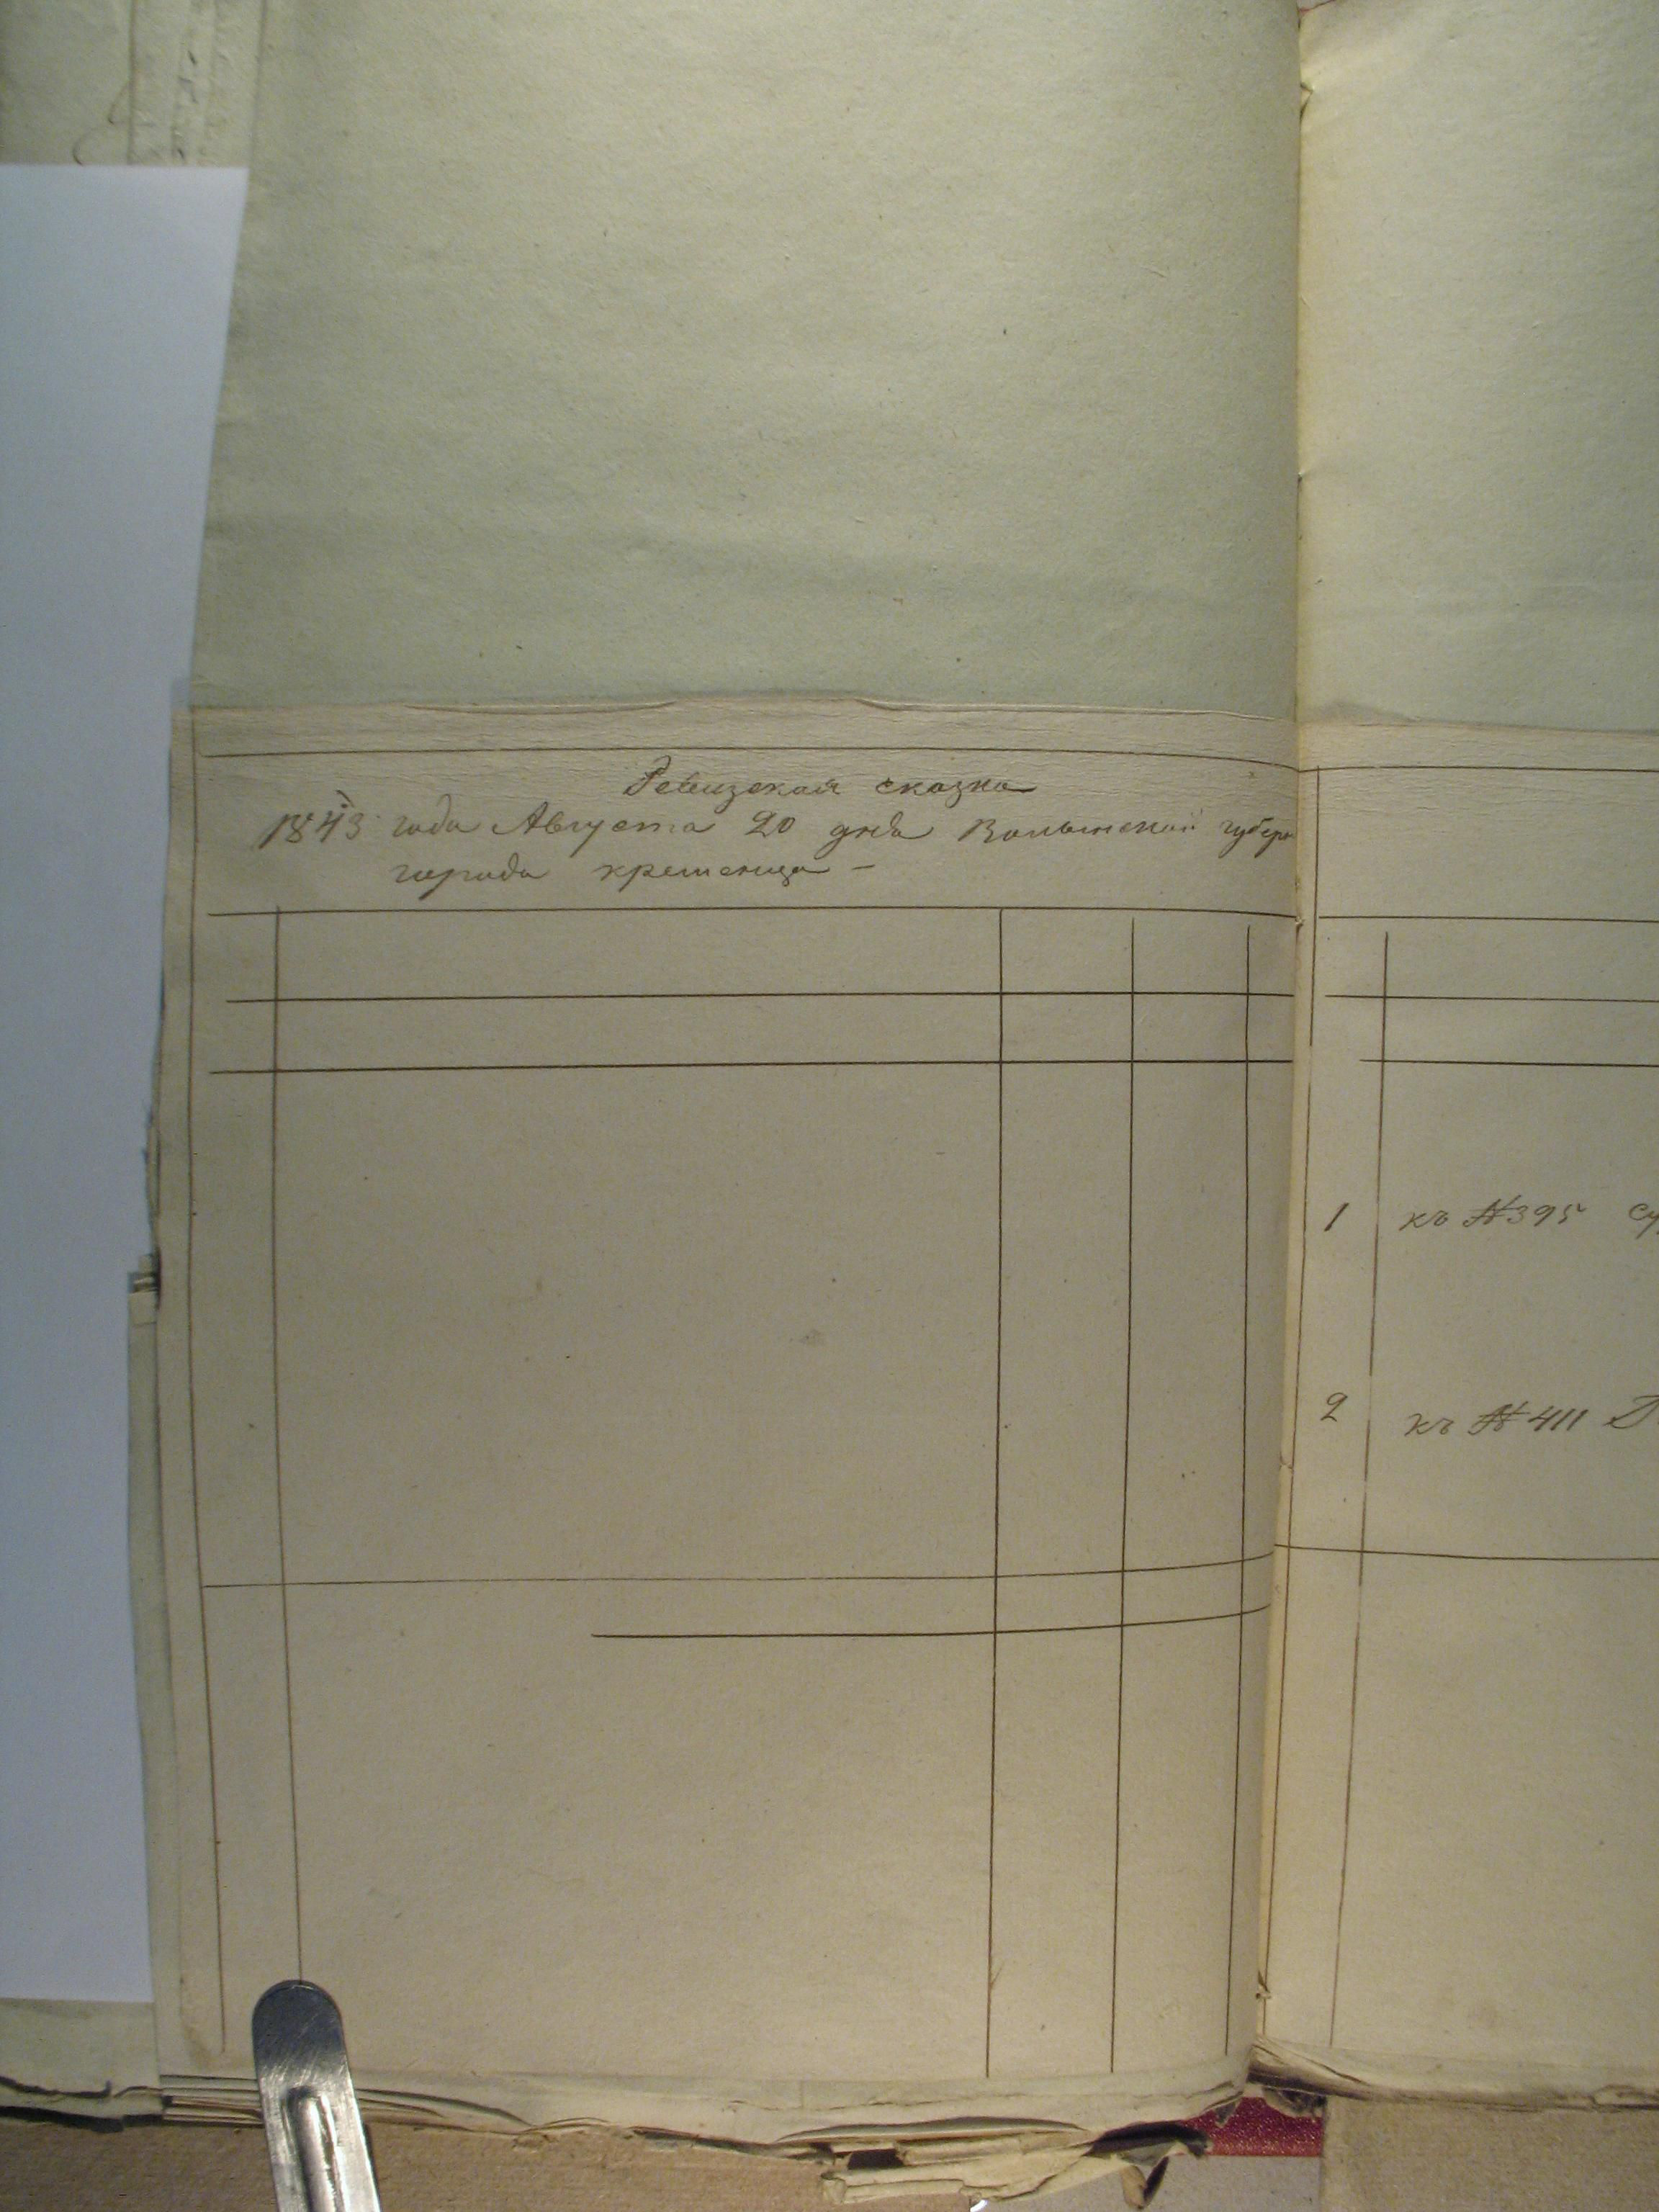 Ревизская сказка
1843 года Августа 20 дня Волынской губер
города кременца –
1 къ №395
2 къ №411